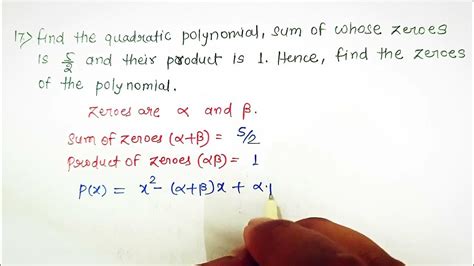 17> find the quadratic polynomial, sum of whose zeroes
is 5/2 and their product is 1. Hence, find the zeroes
of the polynomial.
Zeroes are α and β.
Sum of zeroes (α+β) = 5/2
Product of zeroes (αβ) = 1
P(x) = x² - (α+β)x + α.